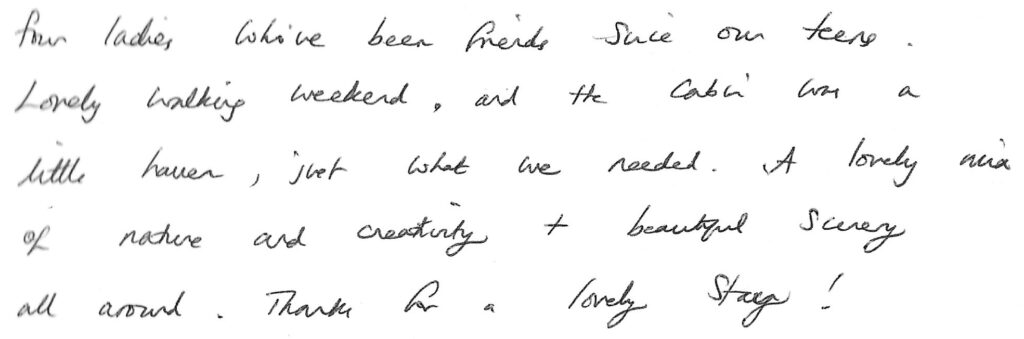 four ladies who've been friends since our teens.
Lovely walking weekend, and the Cabin was a
little haven, just what we needed. A lovely mix
of nature and creativity + beautiful scenery
all around. Thanks for a lovely stay!